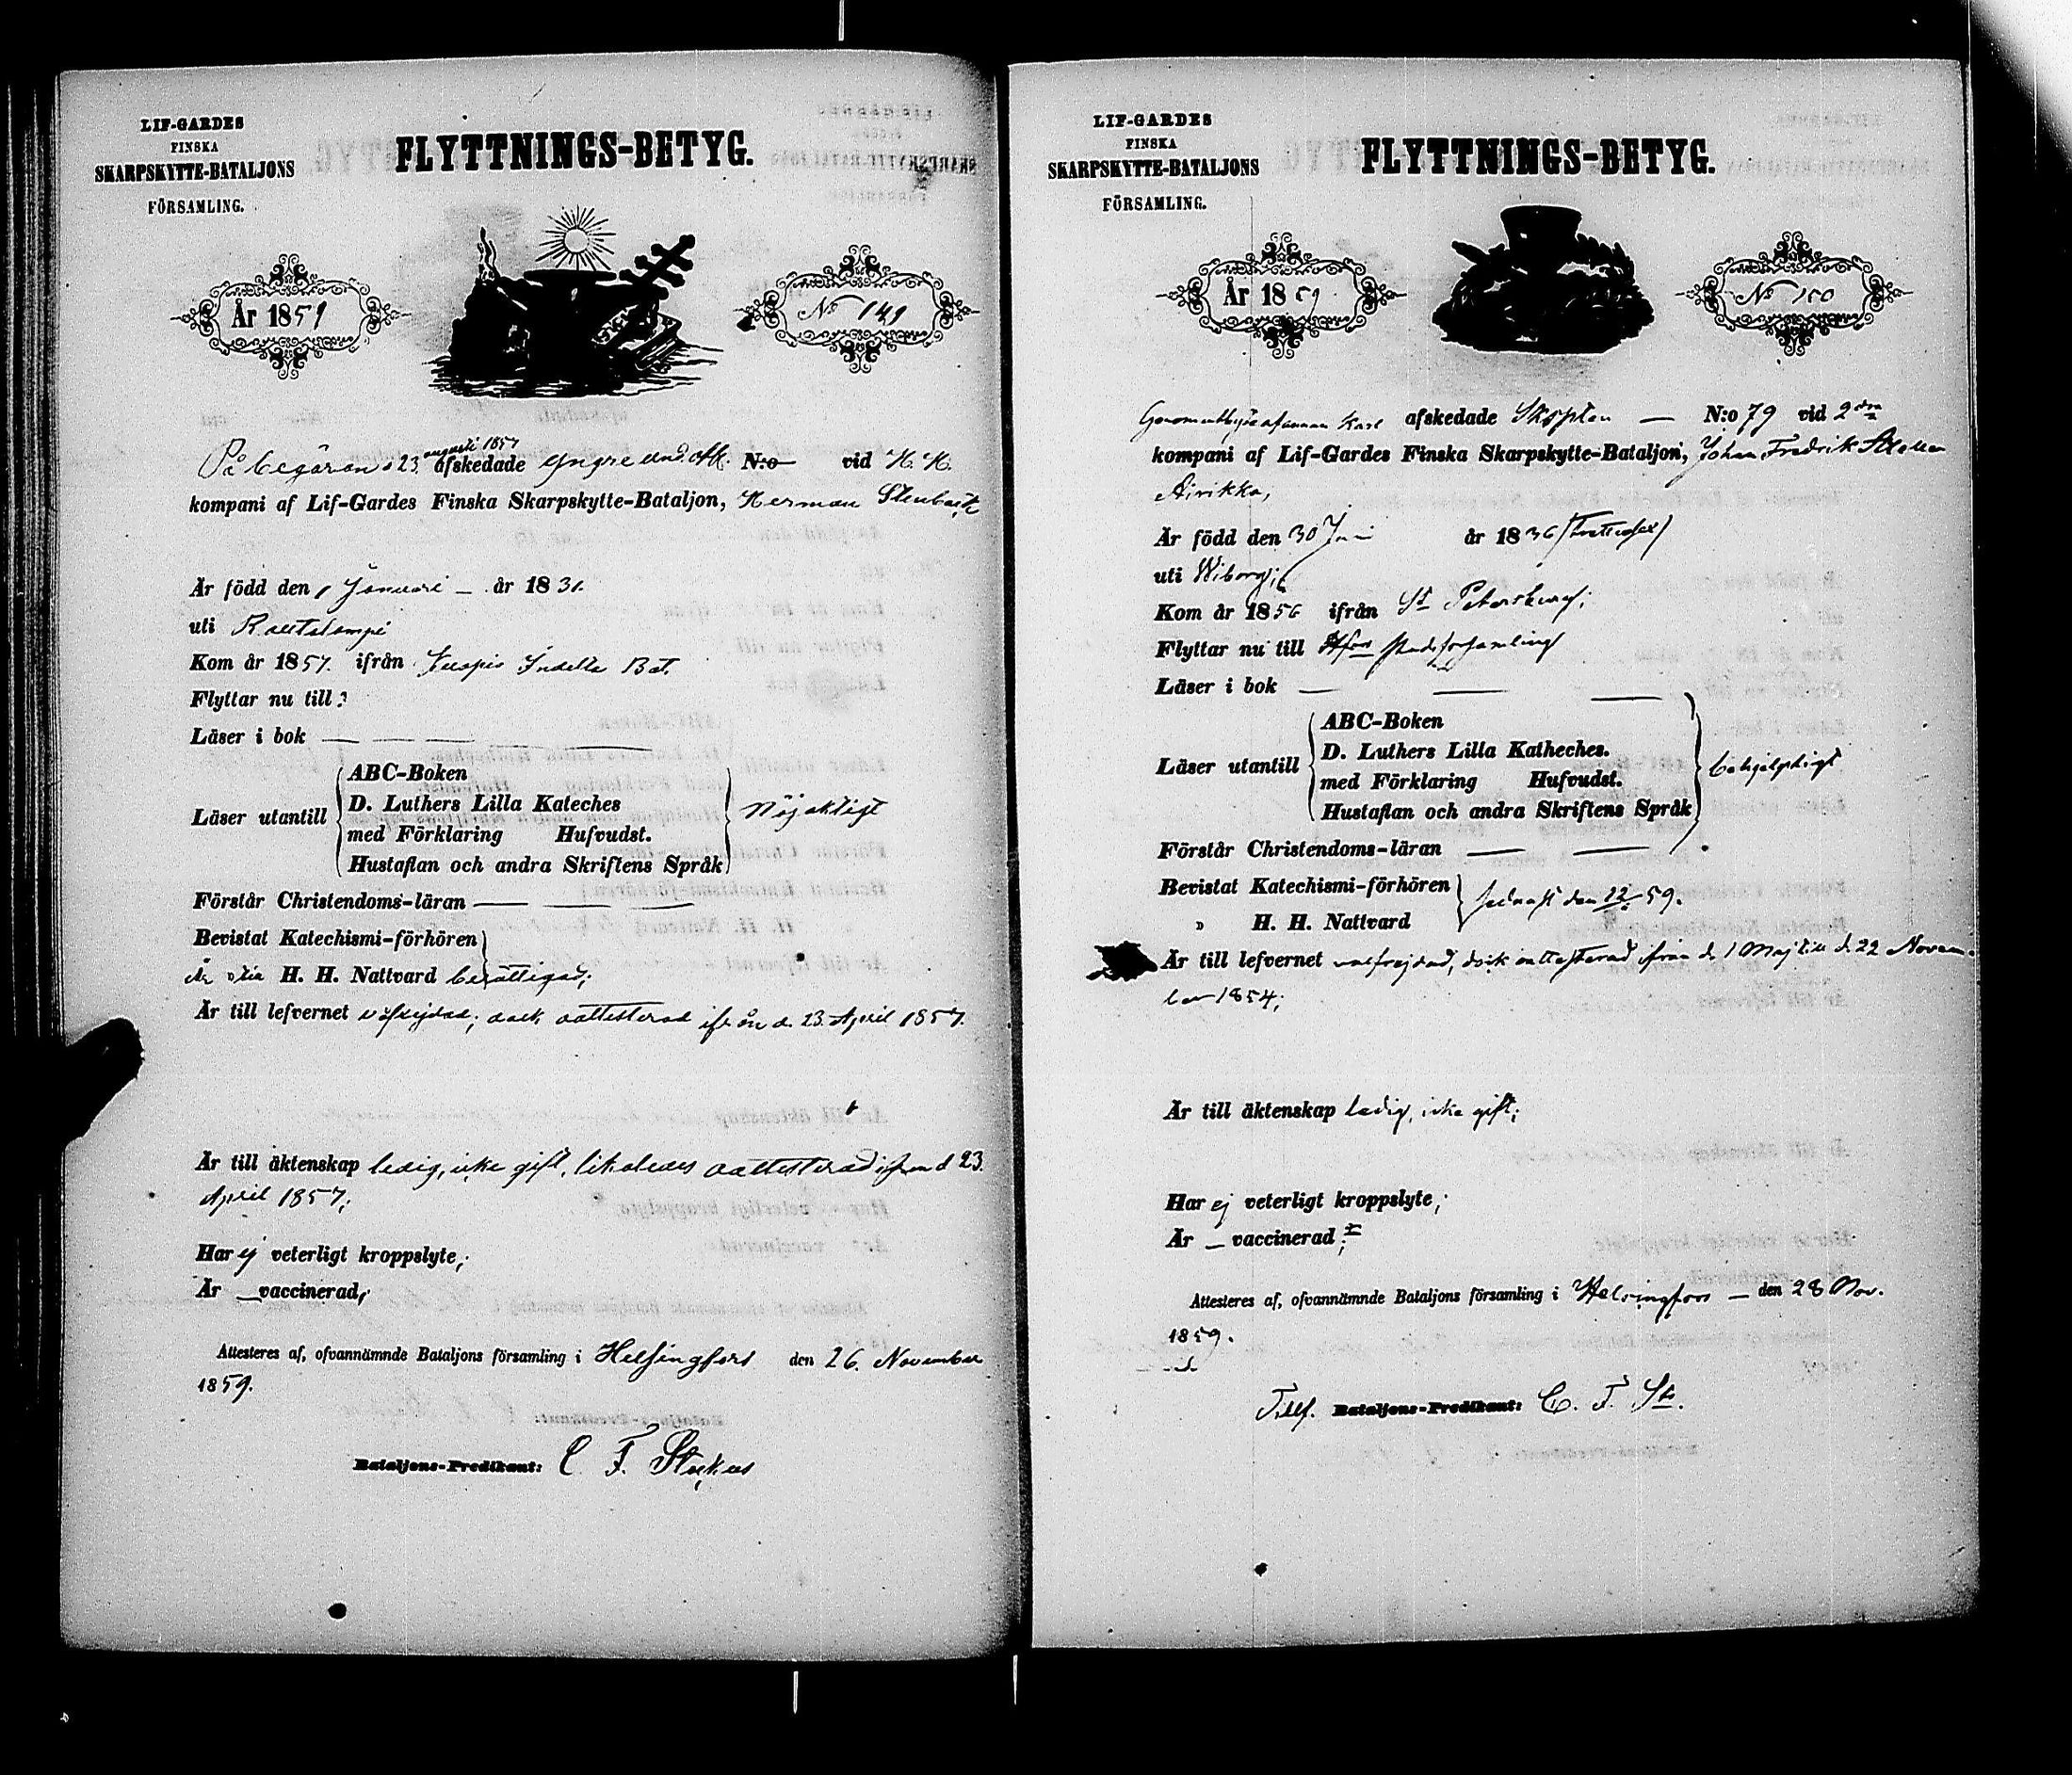 LIF-GARDES
FINSKA
SKARPSKYTTE-BATALJONS
FÖRSAMLING.
FLYTTNINGS-BETYG.
År 1859
No 149
På begäran d 23 augusti 1857 afskedade yngre und. off. N:o vid
kompani af Lif-Gardes Finska Skarpskytte-Bataljon, Herman Stenbäck
Är född den 1 Januari — år 1831.
uti Rautalampi
Kom år 1857. ifrån Kuopio Indelta Bat.
Flyttar nu till ?
Läser i bok — — —
Läser utantill
ABC-Boken
D. Luthers Lilla Kateches
med Förklaring Hufvudst.
Hustaflan och andra Skriftens Språk
Nöjaktigt
Förstår Christendoms-läran — — —
Bevistat Katechismi-förhören
Är till H. H. Nattvard berättigad;
Är till lefvernet välfrejdad; dock oattesterad ifrån d. 23. April 1857.
Är till äktenskap ledig, icke gift, likaledes oattesterad ifrån d 23.
April 1857;
Har ej veterligt kroppslyte;
Är — vaccinerad;
Attesteres af, ofvannämnde Bataljons församling i Helsingfors den 26. November
1859.
Bataljons-Predikant: C. F.
LIF-GARDES
FINSKA
SKARPSKYTTE-BATALJONS
FÖRSAMLING.
FLYTTNINGS-BETYG.
År 1859
No 150
afskedade Skspten — N:o 79 vid 2dra
kompani af Lif-Gardes Finska Skarpskytte-Bataljon, Johan Fredrik
Airikka,
Är född den 30 år 1836 (trettiosex)
uti Wiborg;
Kom år 1856 ifrån St Petersburg;
Flyttar nu till Hfors stadsförsamling
Läser i bok — — —
Läser utantill
ABC-Boken
D. Luthers Lilla Katheches.
med Förklaring Hufvudst.
Hustaflan och andra Skriftens Språk
behjelpligt
Förstår Christendoms-läran — —
Bevistat Katechismi-förhören
» H. H. Nattvard
sednast den 59.
Är till lefvernet välfrejdad, dock oattesterad ifrån d. 1 Maj till d. 22 Novem-
ber 1854;
Är till äktenskap ledig, icke gift;
Har ej veterligt kroppslyte;
Är — vaccinerad;
Attesteres af, ofvannämnde Bataljons församling i Helsingfors — den 28 Nov.
1859.
Tillf. Bataljons-Predikant: C. F. St.